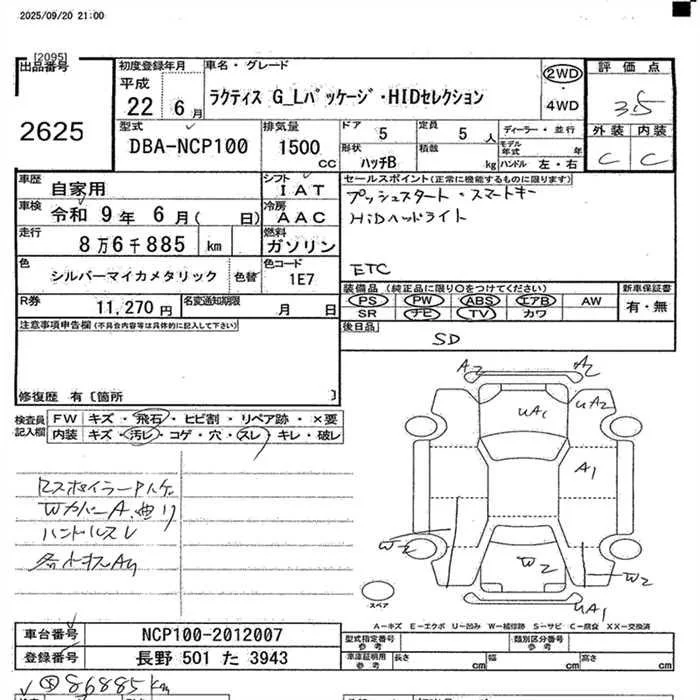 2025/09/20 21:00
[2095]
出品番号
2625
初度登録年月
平成
22 6月
車名・グレード
ラクティス G_Lパッケージ・HIDセレクション
2WD
・
4WD
評価点
3.5
外装 内装
C C
型式
DBA-NCP100
排気量
1500
cc
ドア
5
定員
5人
形状
ハッチB
積載
kg
ディーラー・並行
モデル年式 年
ハンドル 左・右
車歴
自家用
シフト
IAT
車検
令和 9年 6月( 日)
冷房
AAC
走行
8万6千885 km
燃料
ガソリン
色
シルバーマイカメタリック
色替
色コード
1E7
R券
11,270円
名変通知期限
月 日
セールスポイント(正常に機能するものに限ります)
プッシュスタート・スマートキー
HiDヘッドライト
ETC
装備品 (純正品に限り○をつけてください)
PS PW ABS エアB AW
SR ナビ TV カワ
新車保証書
有・無
後日品
SD
注意事項申告欄(不具合内容等は具体的に記入して下さい)
修復歴 有〔箇所 〕
検査員記入欄
FW キズ・飛石・ヒビ割・リペア跡・×要
内装 キズ・汚レ・コゲ・穴・スレ・キレ・破レ
Wカバー A.曲り
ハンドルスレ
A2 A2
UA2
A1
W2
W2
UA1
スペア
A－キズ E－エクボ U－凹み W－補修跡 S－サビ C－腐食 XX－交換済
車台番号
NCP100-2012007
登録番号
長野 501 た 3943
型式指定番号
参考
類別区分番号
参考
車庫証明用
参考
長さ cm 幅 cm 高さ cm
86885km